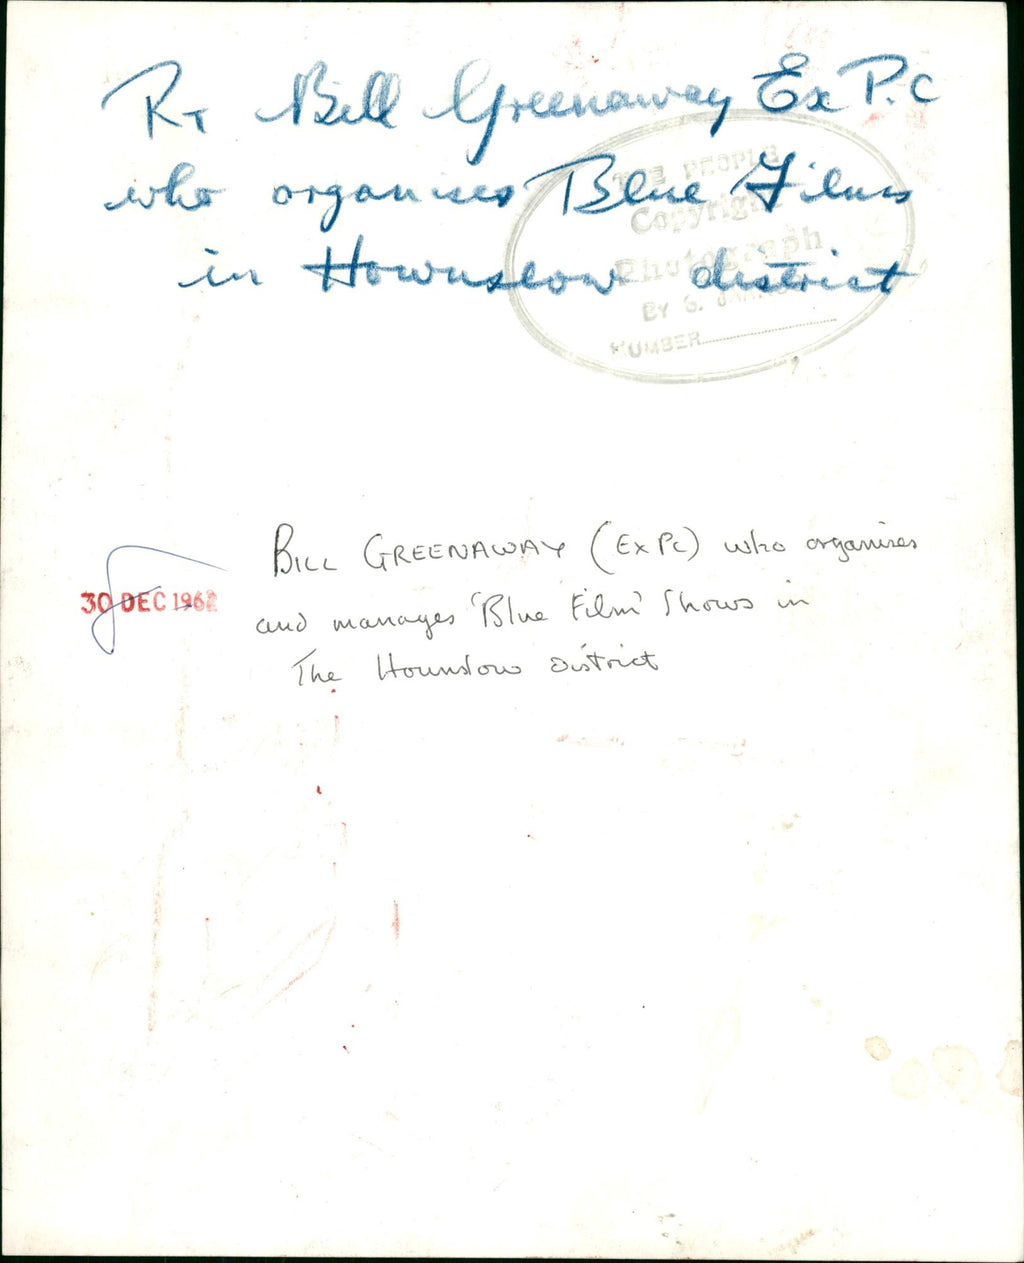 Rt Bill Greenaway Ex P.C
who organises Blue Films
in Hounslow district
THE PEOPLE
Copyright
Photograph
BY S.
NUMBER
BILL GREENAWAY (Ex Pc) who organises
and manages 'Blue Film' Shows in
The Hounslow District
30 DEC 1962